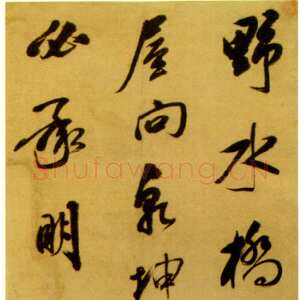 野水橋
屋向泉坤
必承明
Shufawang.cn